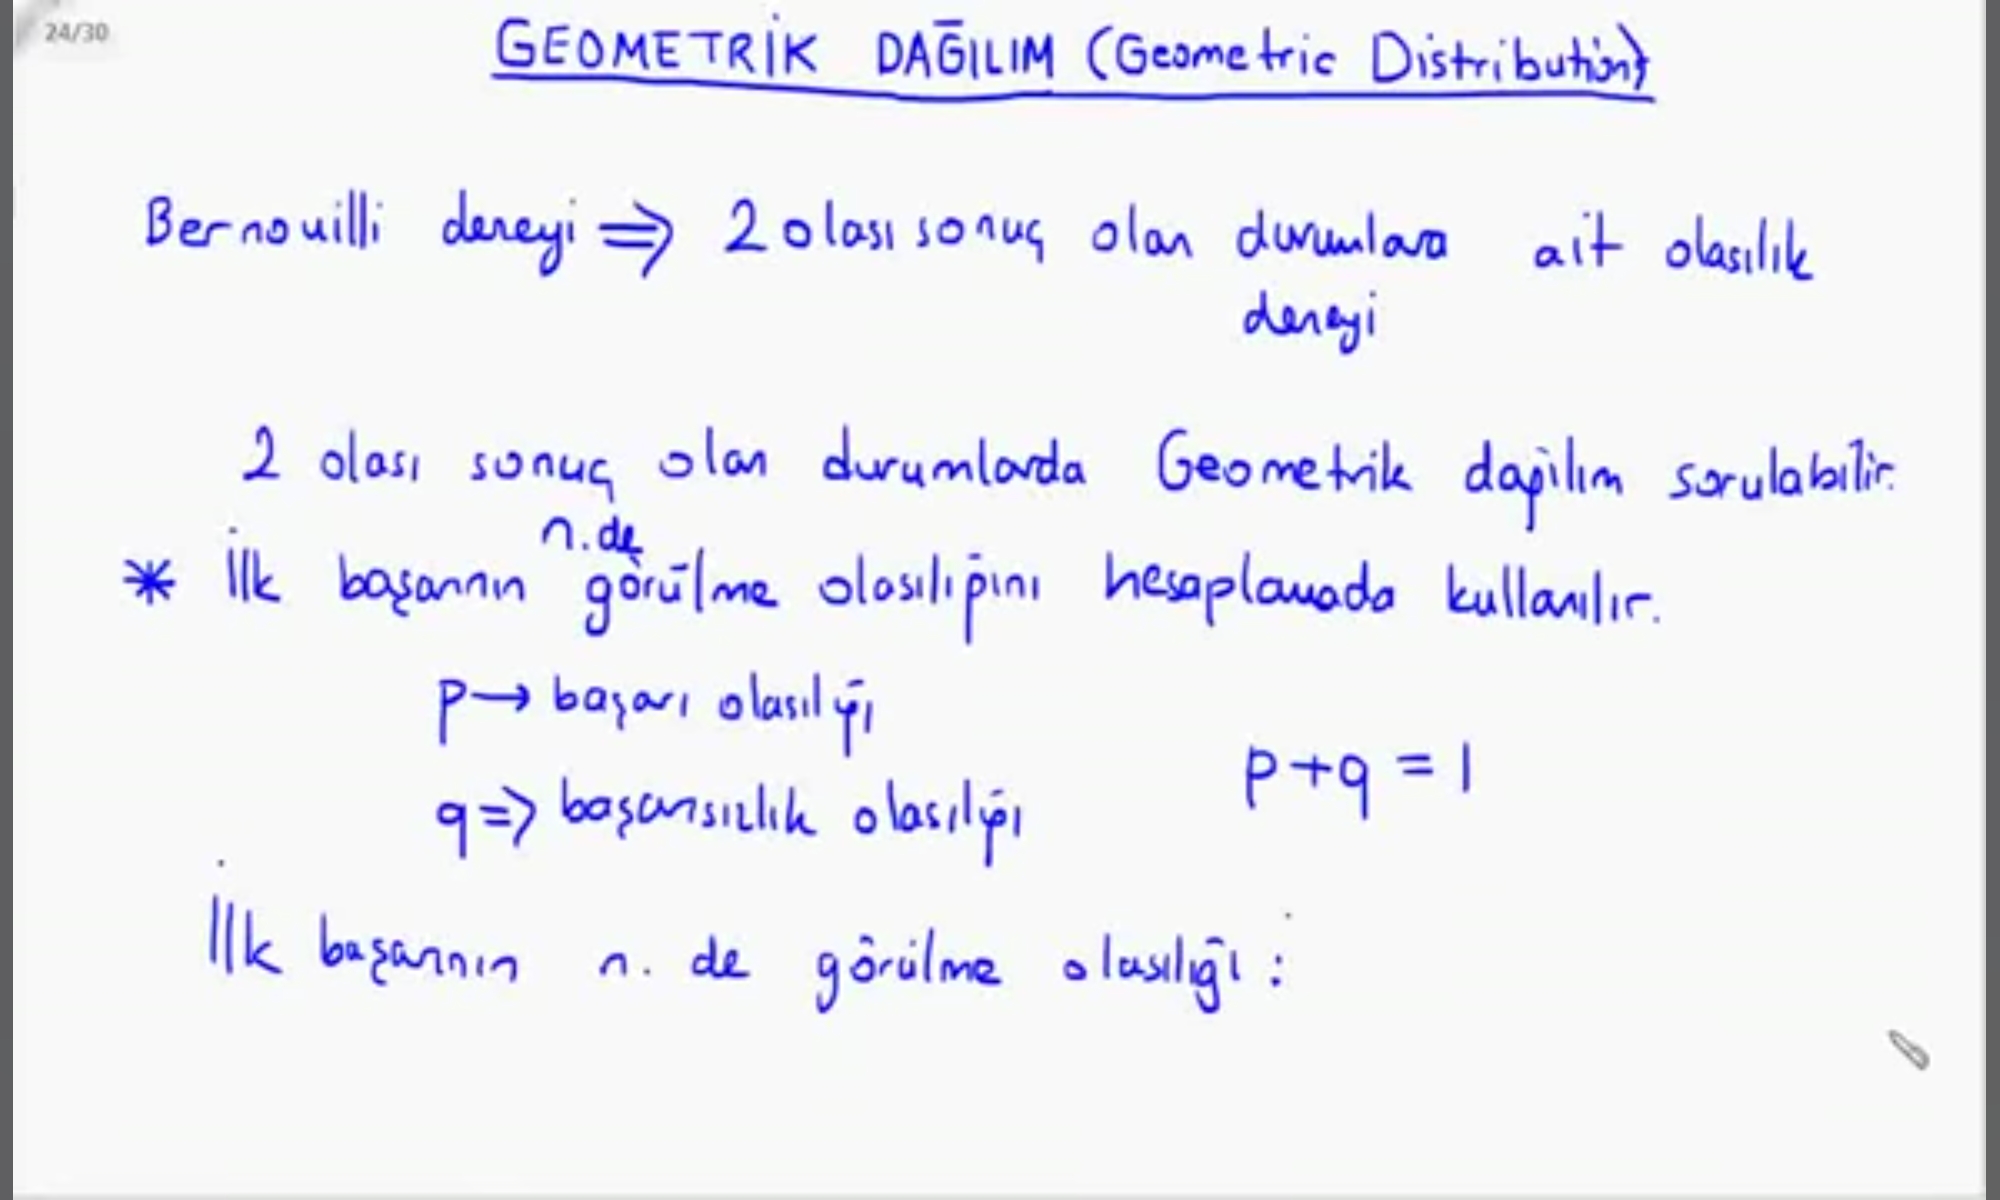 24/30
GEOMETRİK DAĞILIM (Geometric Distribution)
Bernouilli deneyi ⇒ 2 olası sonuç olan durumlara ait olasılık
deneyi
2 olası sonuç olan durumlarda Geometrik dağılım sorulabilir.
n.de
* İlk başarının görülme olasılığını hesaplamada kullanılır.
p → başarı olasılığı
p+q = 1
q ⇒ başarısızlık olasılığı
İlk başarının n. de görülme olasılığı :